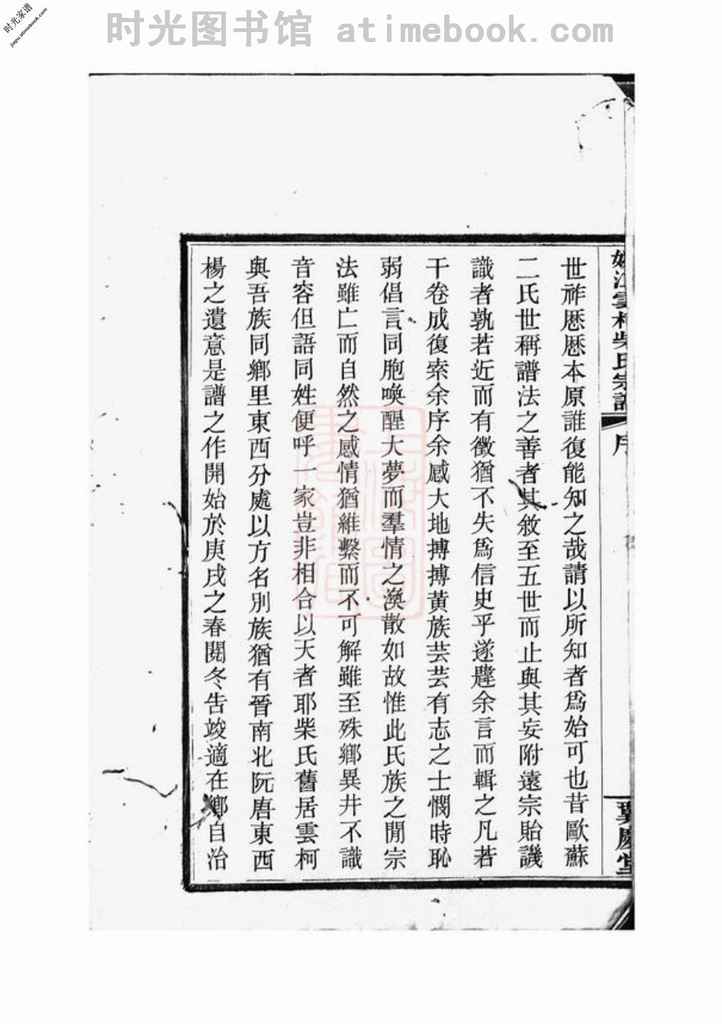 时光图书馆 atimebook.com
时光家谱
jiapu.atimebook.com
姚江雲柯柴氏宗譜
序
世祚歷歷本原誰復能知之哉請以所知者爲始可也昔歐蘇
二氏世稱譜法之善者其敘至五世而止與其妄附遠宗貽譏
識者孰若近而有徵猶不失爲信史乎遂韙余言而輯之凡若
干卷成復索余序余感大地搏搏黃族芸芸有志之士憫時恥
弱倡言同胞喚醒大夢而羣情之渙散如故惟此氏族之閒宗
法雖亡而自然之感情猶維繫而不可解雖至殊鄉異井不識
音容但語同姓便呼一家豈非相合以天者耶柴氏舊居雲柯
與吾族同鄉里東西分處以方名別族猶有晉南北阮唐東西
楊之遺意是譜之作開始於庚戌之春閱冬告竣適在鄉自治
翼慶堂